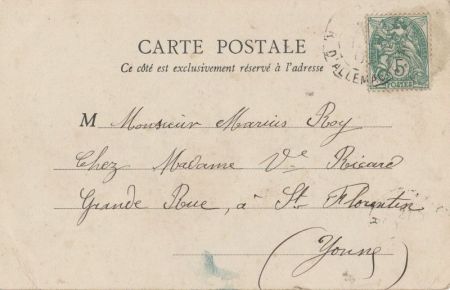 CARTE POSTALE
Ce côté est exclusivement réservé à l'adresse
D'ALLEMA
5
POSTES
M Monsieur Marius Roy
Chez Madame Vᵉ Ricard
Grande Rue, à St Florentin
(Yonne)